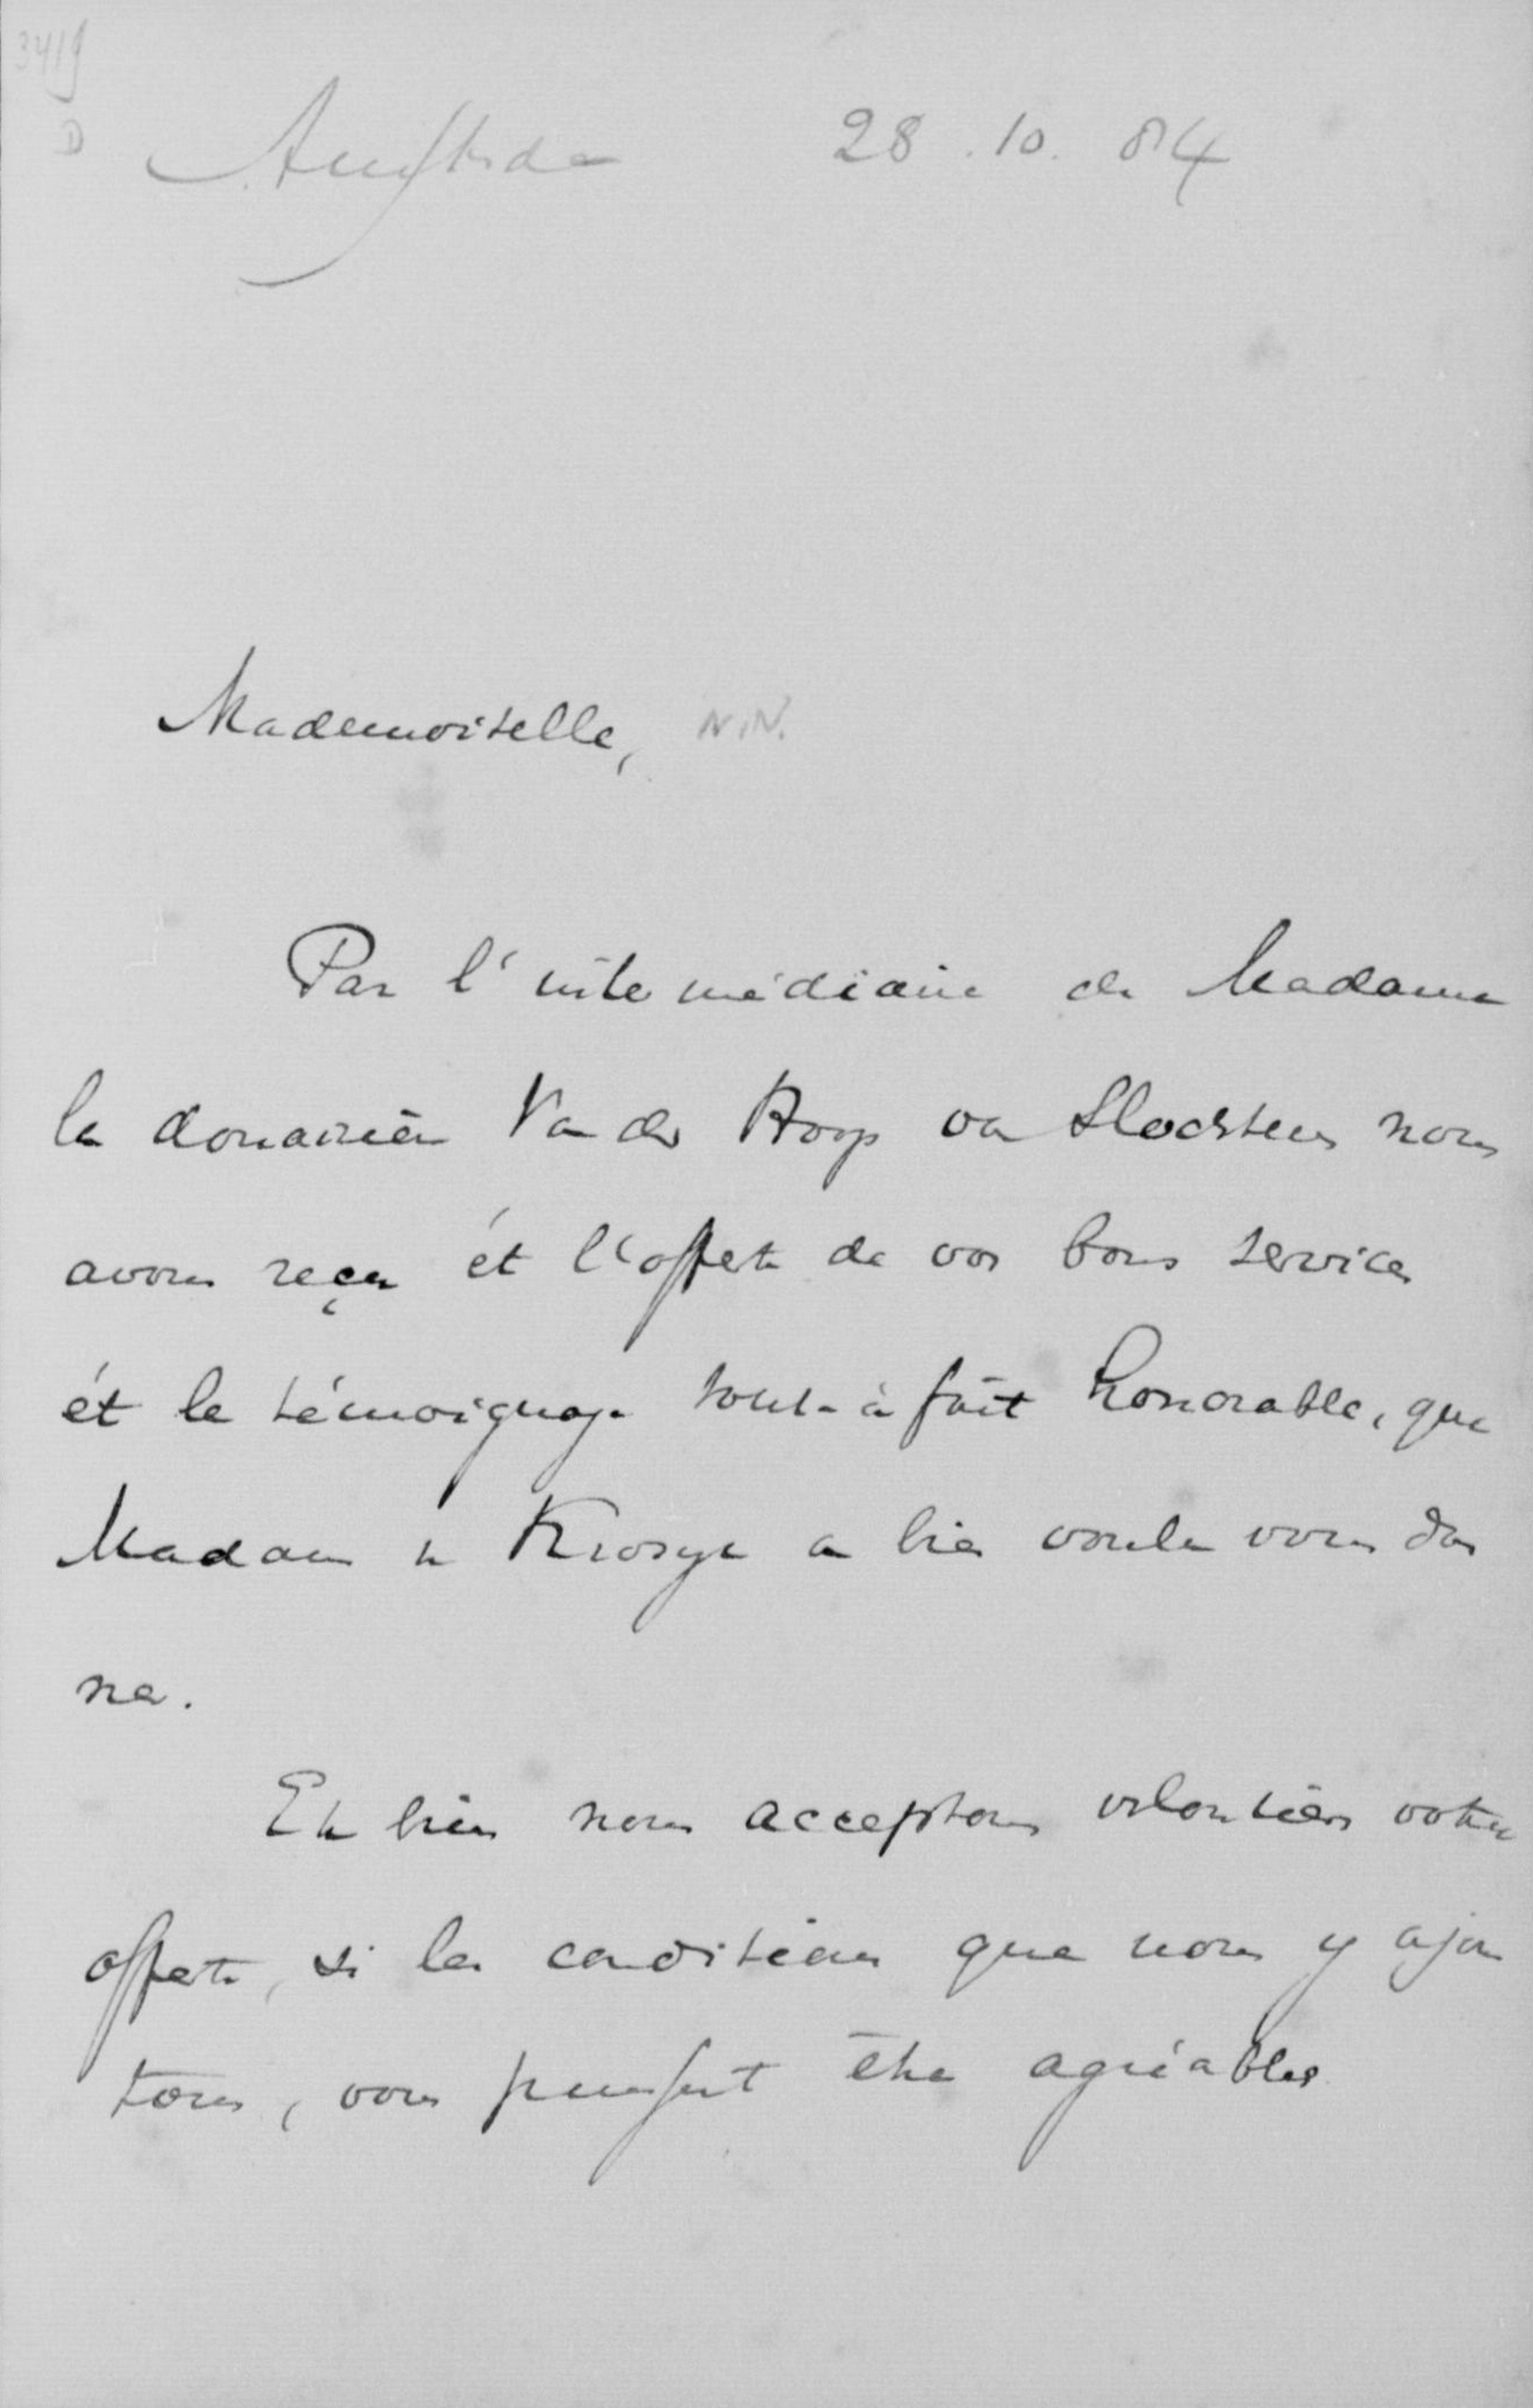 3419
D
Amsterdam 28.10.84
Mademoiselle, N.N.
Par l'intermédiaire de Madame
la douairière Van der Hoop van Slochteren nous
avons reçu ét l'offerte de vos bons services
ét le témoignage tout-à fait honorable, que
Madame a bien voulu vous don
ner.
Eh bien nous acceptons volontiers votre
offerte, si les conditions que nous y ajou
tons, vous puissent être agréables